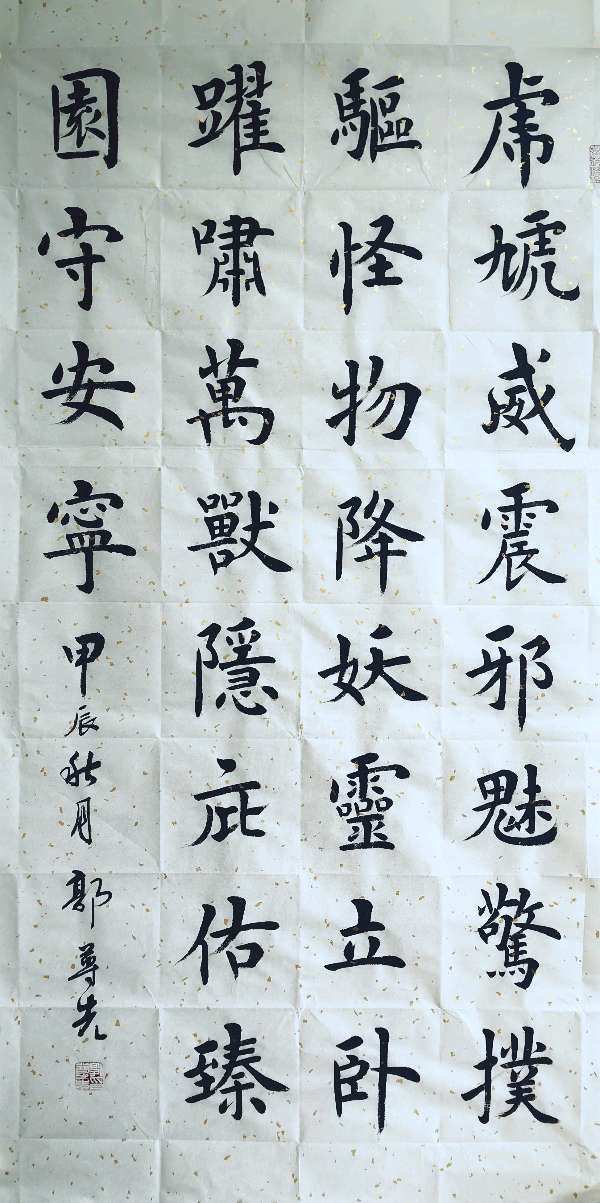 虎虓威震邪魅驚撲
驅怪物降妖靈立卧
躍嘯萬獸隱庇佑臻
園守安寧甲辰秋月郭尊先